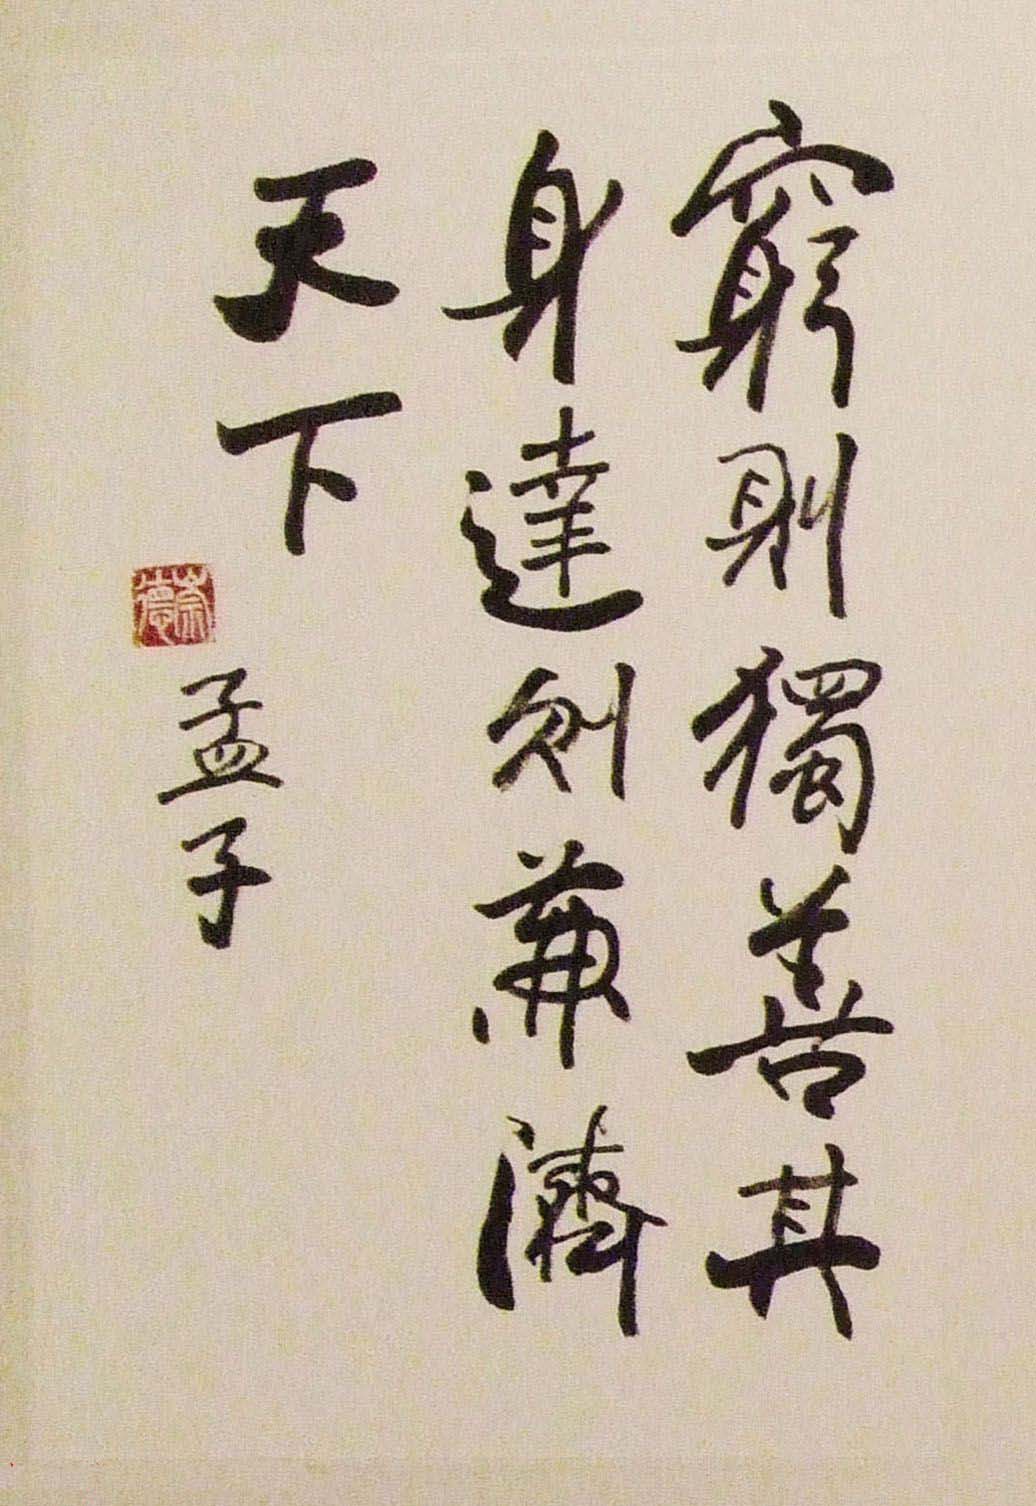 窮則獨善其
身達則兼濟
天下
孟子
崇德